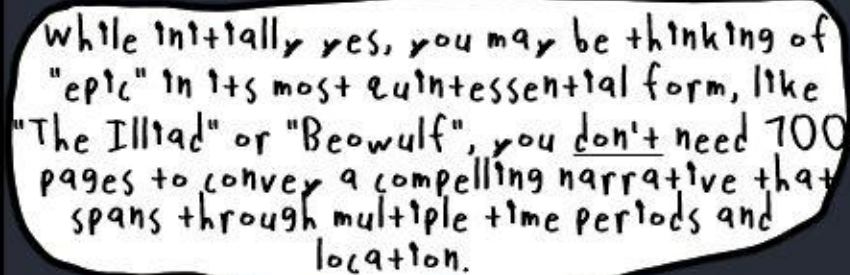 While initially yes, you may be thinking of
"epic" in its most quintessential form, like
"The Illiad" or "Beowulf", you don't need 700
pages to convey a compelling narrative that
spans through multiple time periods and
location.